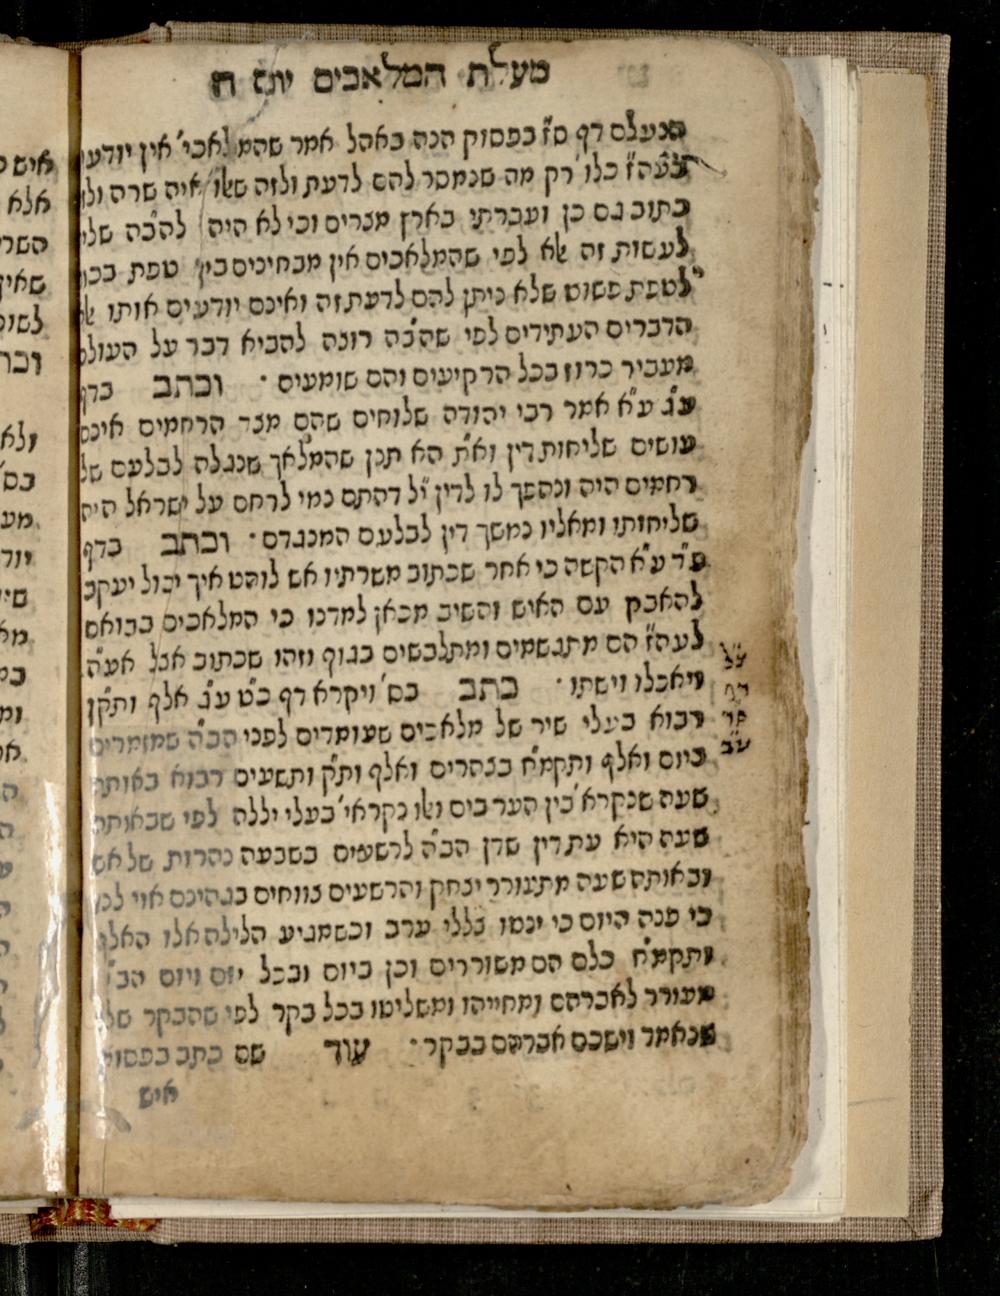 מעלת המלאכים יונ׳ ח
הנעלם דף ס״ז בפסוק הנה באהל אמר שהמלאכי׳ אין יודעי
בעה״ז כלו׳ רק מה שנמסר להם לדעת ולזה שאלו איה שרה ולזה
כתוב גם כן ועברתי בארץ מצרים וכי לא היה להב״ה שליח
לעשות זה אלא לפי שהמלאכים אין מבחינים בין טפת בכור
לטפת פשוט שלא ניתן להם לדעת זה ואינם יודעים אותו אלא
הדברים העתידים לפי שהב״ה רוצה להביא דבר על העולם
מעביר כרוז בכל הרקיעים והם שומעים · וכתב בדף
ע״ג ע״א אמר רבי יהודה שלוחים שהם מצד הרחמים אינם
עושים שליחות דין וא״ת הא תנן שהמלאך שנגלה לבלעם של
רחמים היה ונהפך לו לדין י״ל דהתם נמי לרחם על ישראל היה
שליחותו ומאליו נמשך דין לבלעם המנגדם · וכתב בדף
פ״ד ע״א הקשה כי אחר שכתוב משרתיו אש לוהט איך יכול יעקב
להאבק עם האיש והשיב מכאן למדנו כי המלאכים בבואם
לעה״ז הם מתגשמים ומתלבשים בגוף וזהו שכתוב אצל אע״ה
ויאכלו וישתו · כתב בס׳ ויקרא דף כ״ט ע״ג אלף ותק״ן
רבוא בעלי שיר של מלאכים שעומדים לפני הב״ה שמזמרים
ביום ואלף ותקמ״ח בצהרים ואלף ותק״ק ותשעים רבוא באותה
שעה שנקרא׳ בין הערבים ואלו נקראי׳ בעלי יללה לפי שבאותה
שעה היא עת דין שדן הב״ה לרשעים בשבעה נהרות של אש
ובאותה שעה מתעורר יצחק והרשעים צווחים בגהינם אוי לנו
כי פנה היום כי ינטו צללי ערב וכשמגיע הלילה אלו האלף
ותקמ״ח כלם הם משוררים וכן ביום ובכל יום ויום הב״ה
מעורר לאברהם ומחייהו ומשליטו בכל בקר לפי שהבקר שלו
שנאמר וישכם אברהם בבקר · עוד שם כתב בפסוק
איש
דף
ע״ב